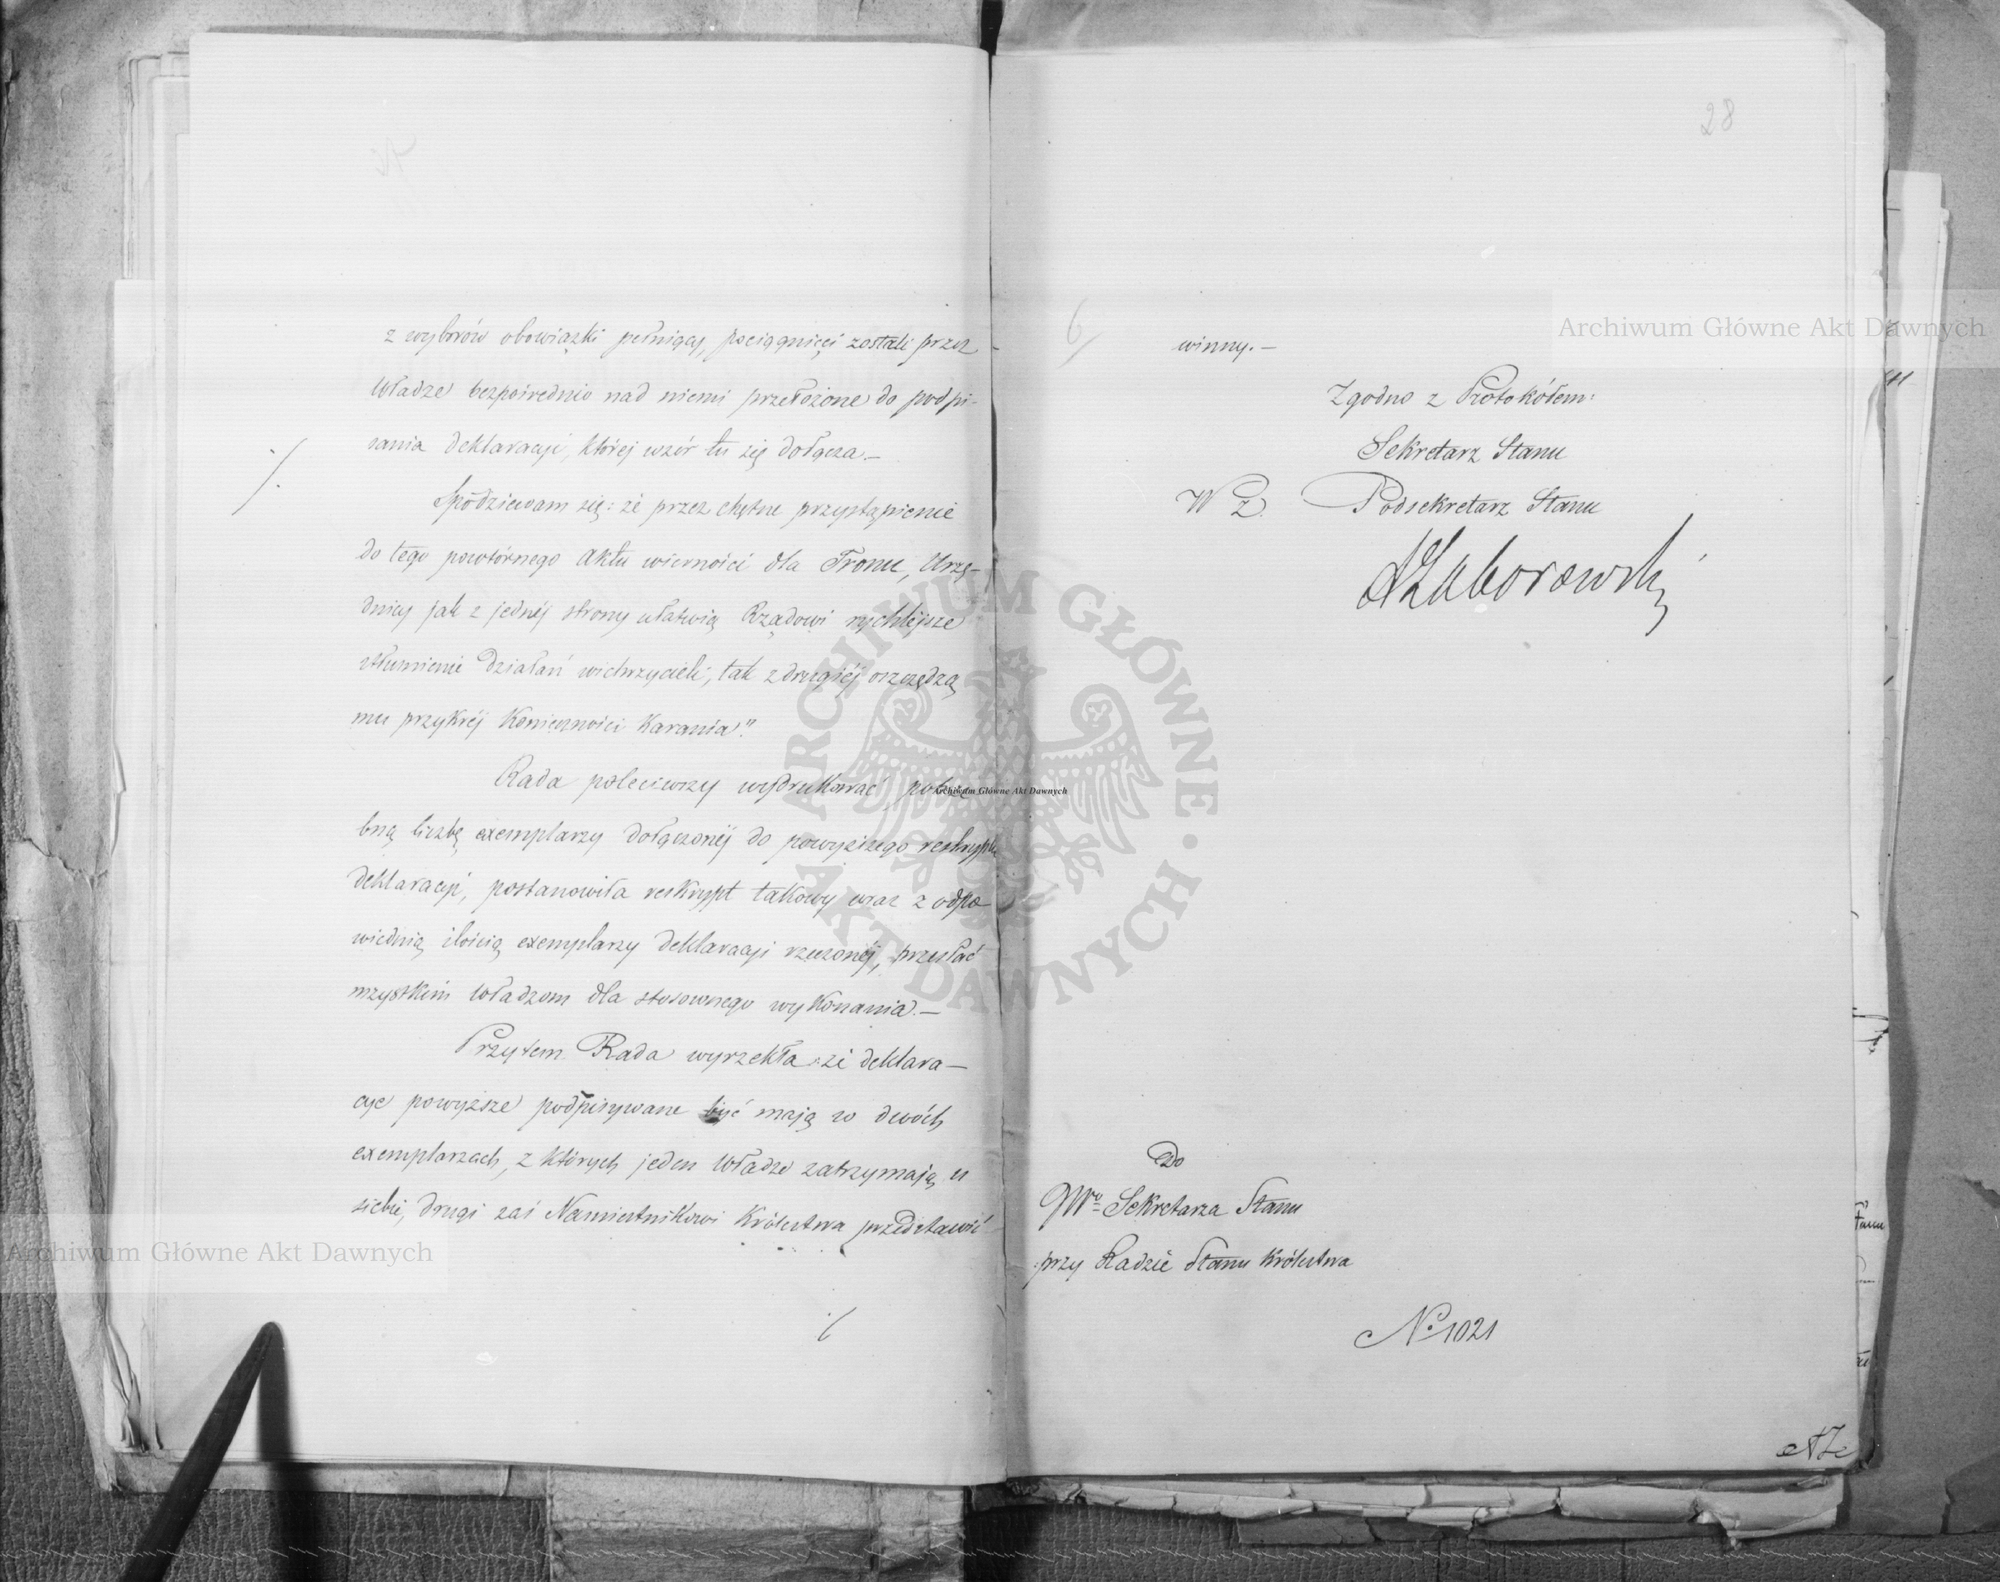 z wyborów obowiązki pełniący, pociągnięci zostali przez
Władze bezpośrednio nad niemi przełożone do podpi-
sania deklaracyi, której wzór tu się dołącza.—
Spodziewam się: że przez chętne przystąpienie
do tego powtórnego aktu wierności dla Tronu, Urzę-
dnicy jak z jednéj strony ułatwią Rządowi rychlejsze
stłumienie działań wichrzycieli, tak z drugiéj oszczędzą
mu przykréj konieczności karania".
Rada poleciwszy wydrukować potrze
bną liczbę exemplarzy dołączonéj do powyższego reskryptu
deklaracyi, postanowiła reskrypt takowy wraz z odpo
wiednią ilością exemplarzy deklaracyi rzeczonéj, przesłać
wszystkim Władzom dla stosownego wykonania.—
Przytem Rada wyrzekła: że deklara—
cye powyższe podpisywane być mają w dwóch
exemplarzach, z których jeden Władze zatrzymają u
siebie, drugi zaś Namiestnikowi Królestwa przedstawić
28
6
winny.—
Zgodno z Protokółem:
Sekretarz Stanu
W Z. Podsekretarz Stanu
AZaborowski
Do
JWo Sekretarza Stanu
przy Radzie Stanu Królestwa
No. 1021
Archiwum Główne Akt Dawnych
Archiwum Główne Akt Dawnych
Archiwum Główne Akt Dawnych
ARCHIWUM GŁÓWNE · AKT DAWNYCH ·